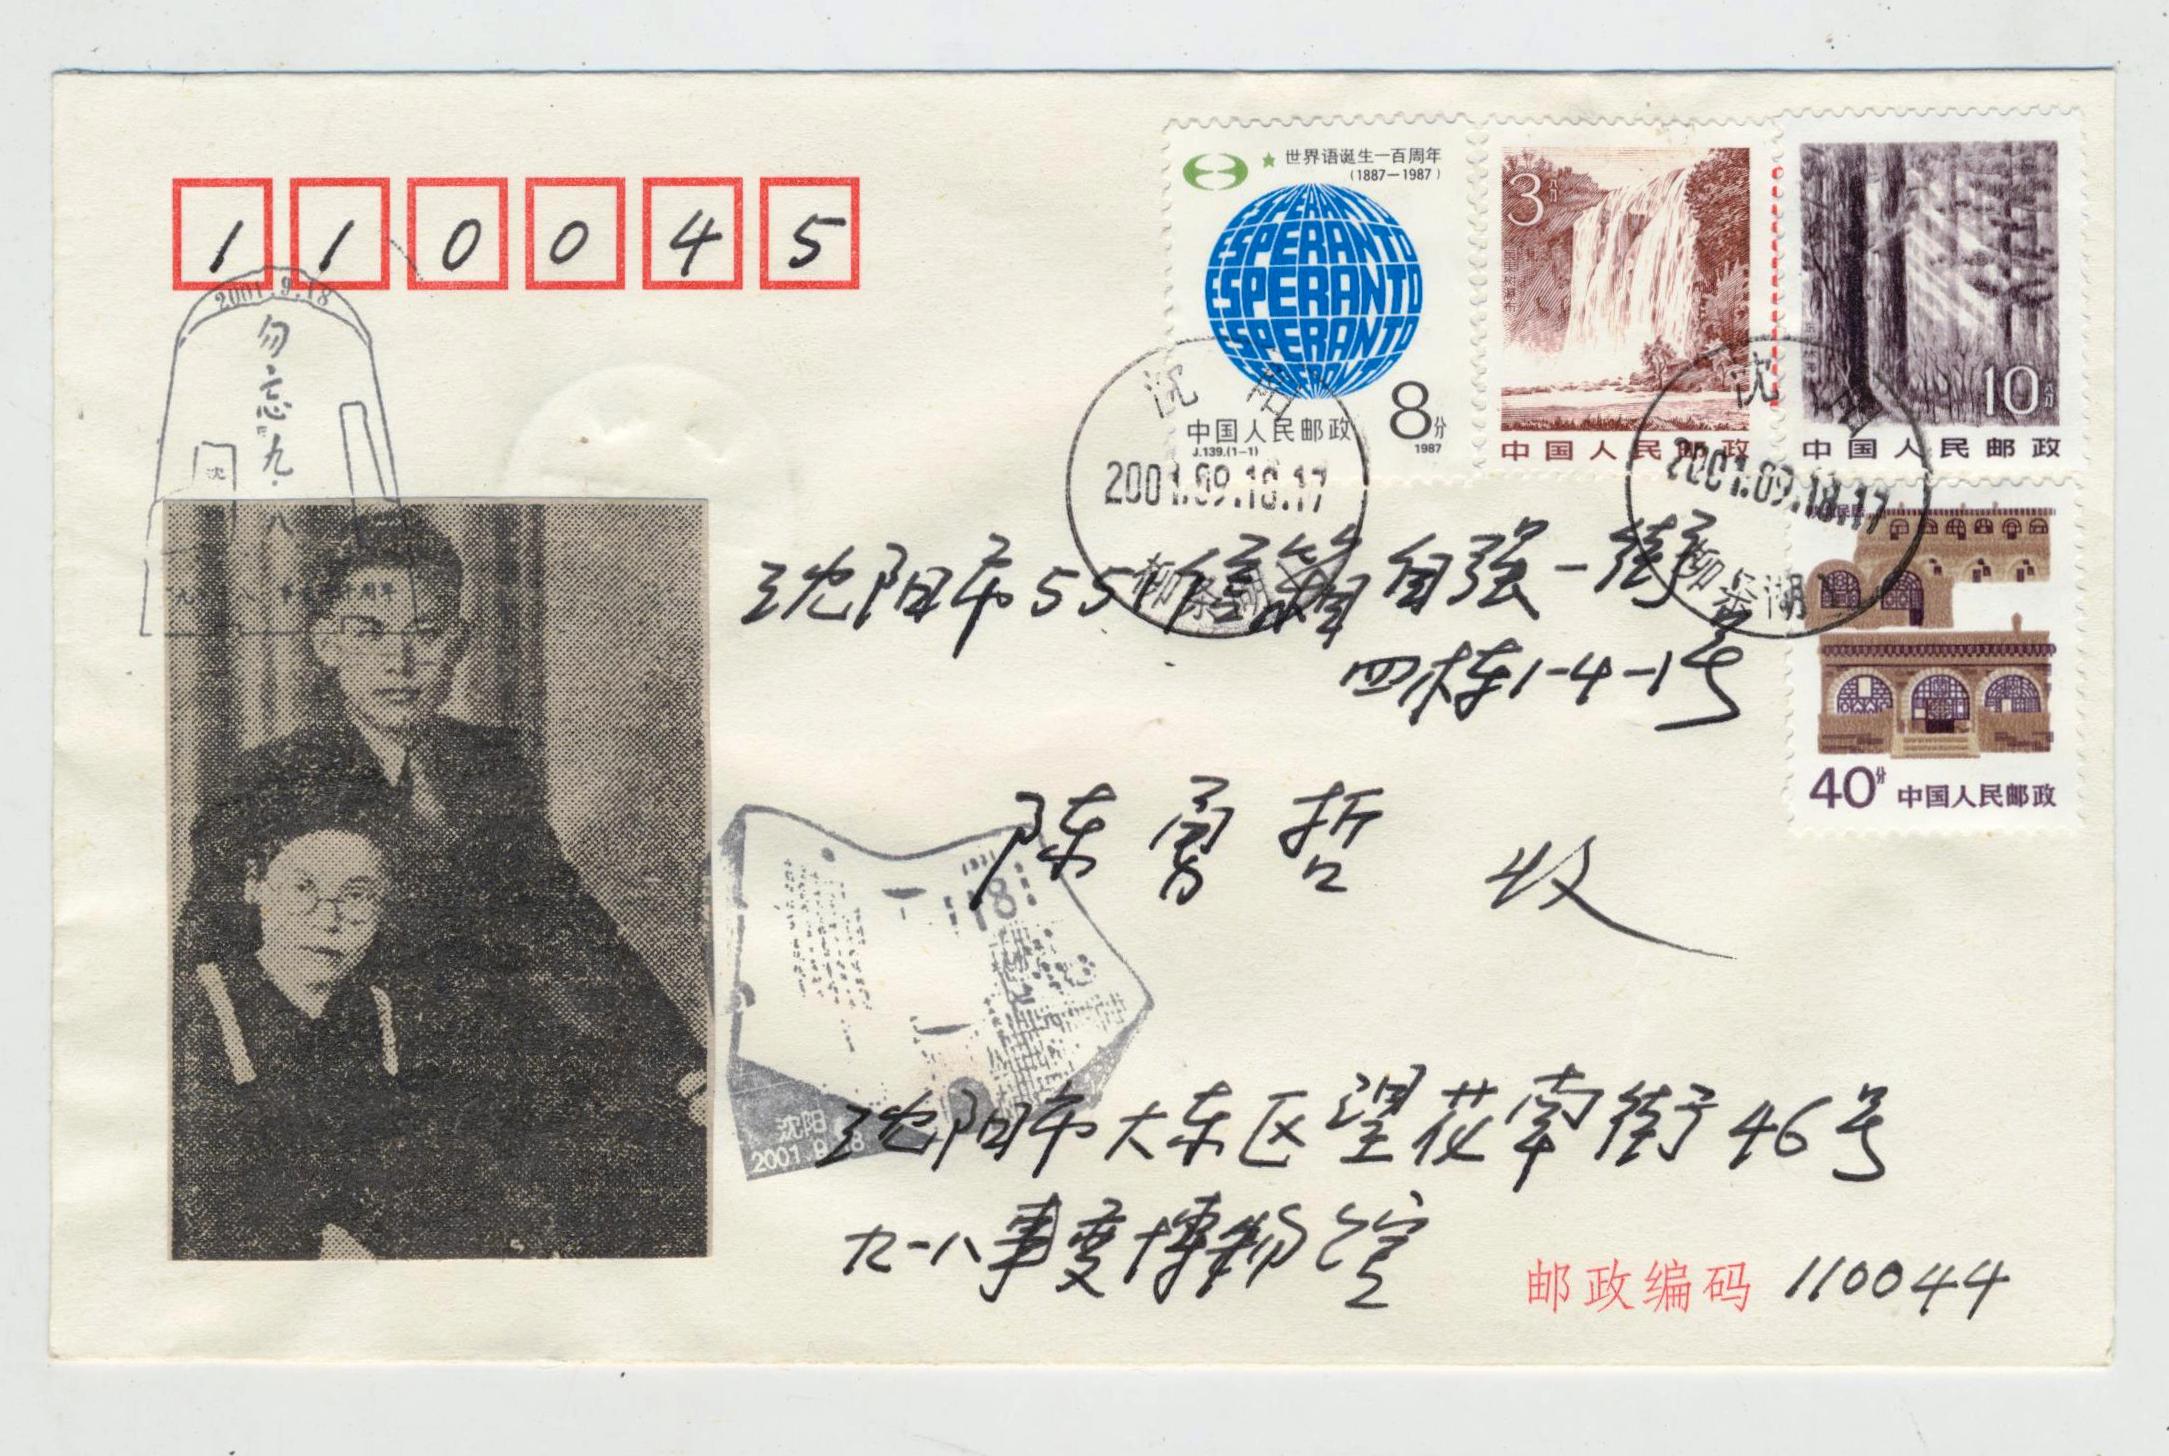 110045
世界语诞生一百周年
(1887—1987)
ESPERANTO
ESPERANTO
ESPERANTO
8分
中国人民邮政
J.139.(1-1)
1987
3分
中国人民邮政
10分
中国人民邮政
40分 中国人民邮政
2001.9.18
勿忘九·
一八
沈阳
2001.09.18.17
柳条湖
沈阳
2001.09.18.17
柳条湖
沈阳市55信箱自强一街
四栋1-4-1号
陈勇哲 收
1931
18
沈阳
2001.9.18
沈阳市大东区望花南街46号
九一八事变博物馆
邮政编码 110044